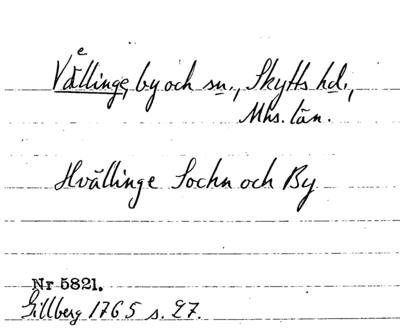 Vällinge, by och sn., Skytts hd.,
Mhs. län.
Hvällinge Sochn och By
Nr 5821.
Gillberg 1765 s. 27.